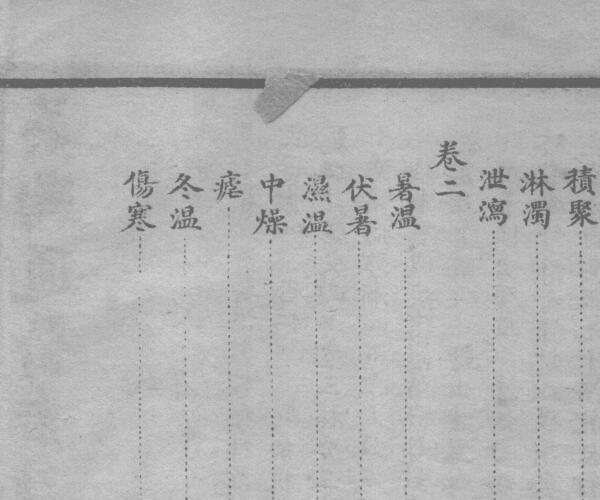 積聚
淋濁
泄瀉
卷二
暑温
伏暑
濕温
中燥
瘧
冬温
傷寒